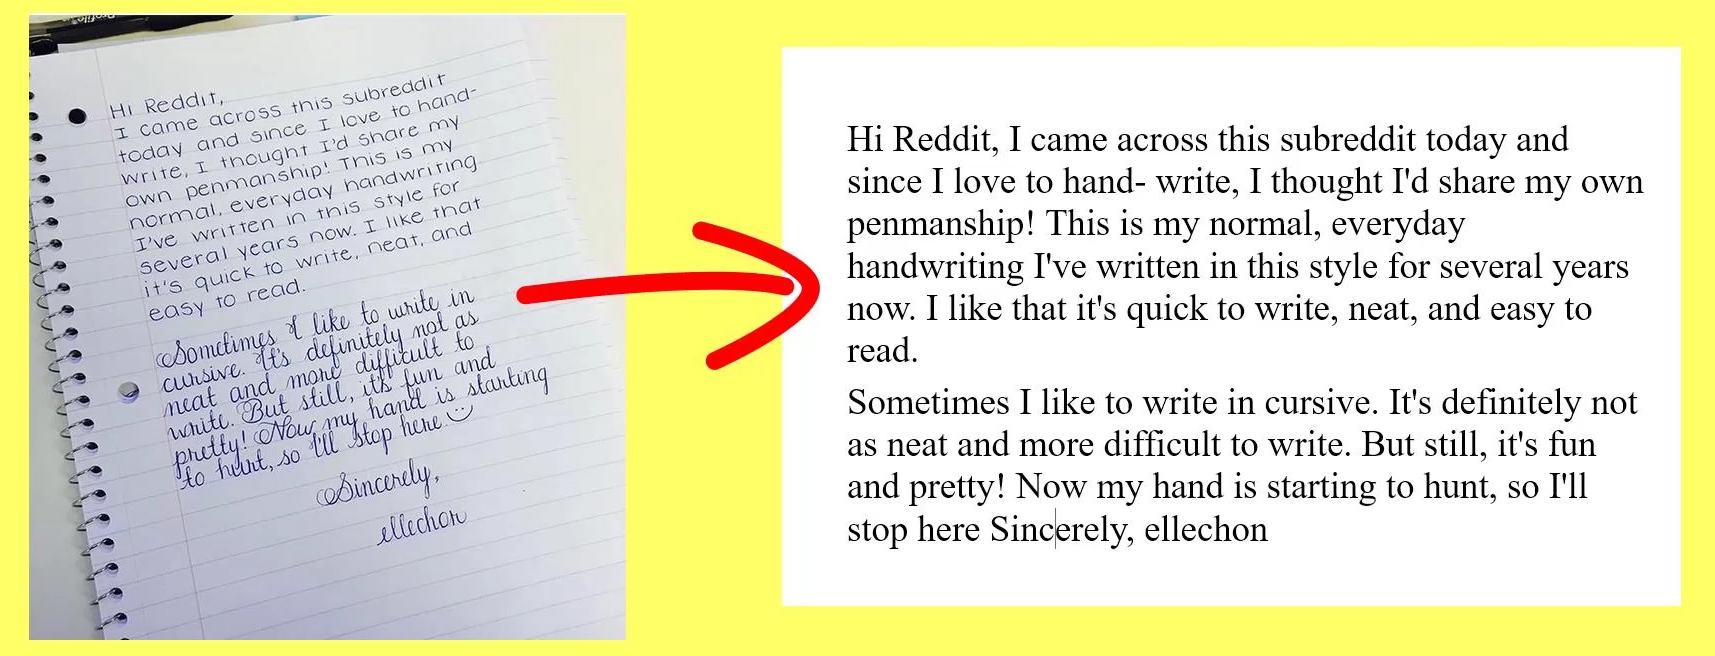 Hi Reddit,
I came across this subreddit
today and since I love to hand-
write, I thought I'd share my
own penmanship! This is my
normal, everyday handwriting
I've written in this style for
several years now. I like that
it's quick to write, neat, and
easy to read.
Sometimes I like to write in
cursive. It's definitely not as
neat and more difficult to
write. But still, it's fun and
pretty! Now my hand is starting
to hurt, so I'll stop here.
Sincerely,
ellechon
Hi Reddit, I came across this subreddit today and
since I love to hand- write, I thought I'd share my own
penmanship! This is my normal, everyday
handwriting I've written in this style for several years
now. I like that it's quick to write, neat, and easy to
read.
Sometimes I like to write in cursive. It's definitely not
as neat and more difficult to write. But still, it's fun
and pretty! Now my hand is starting to hunt, so I'll
stop here Sincerely, ellechon